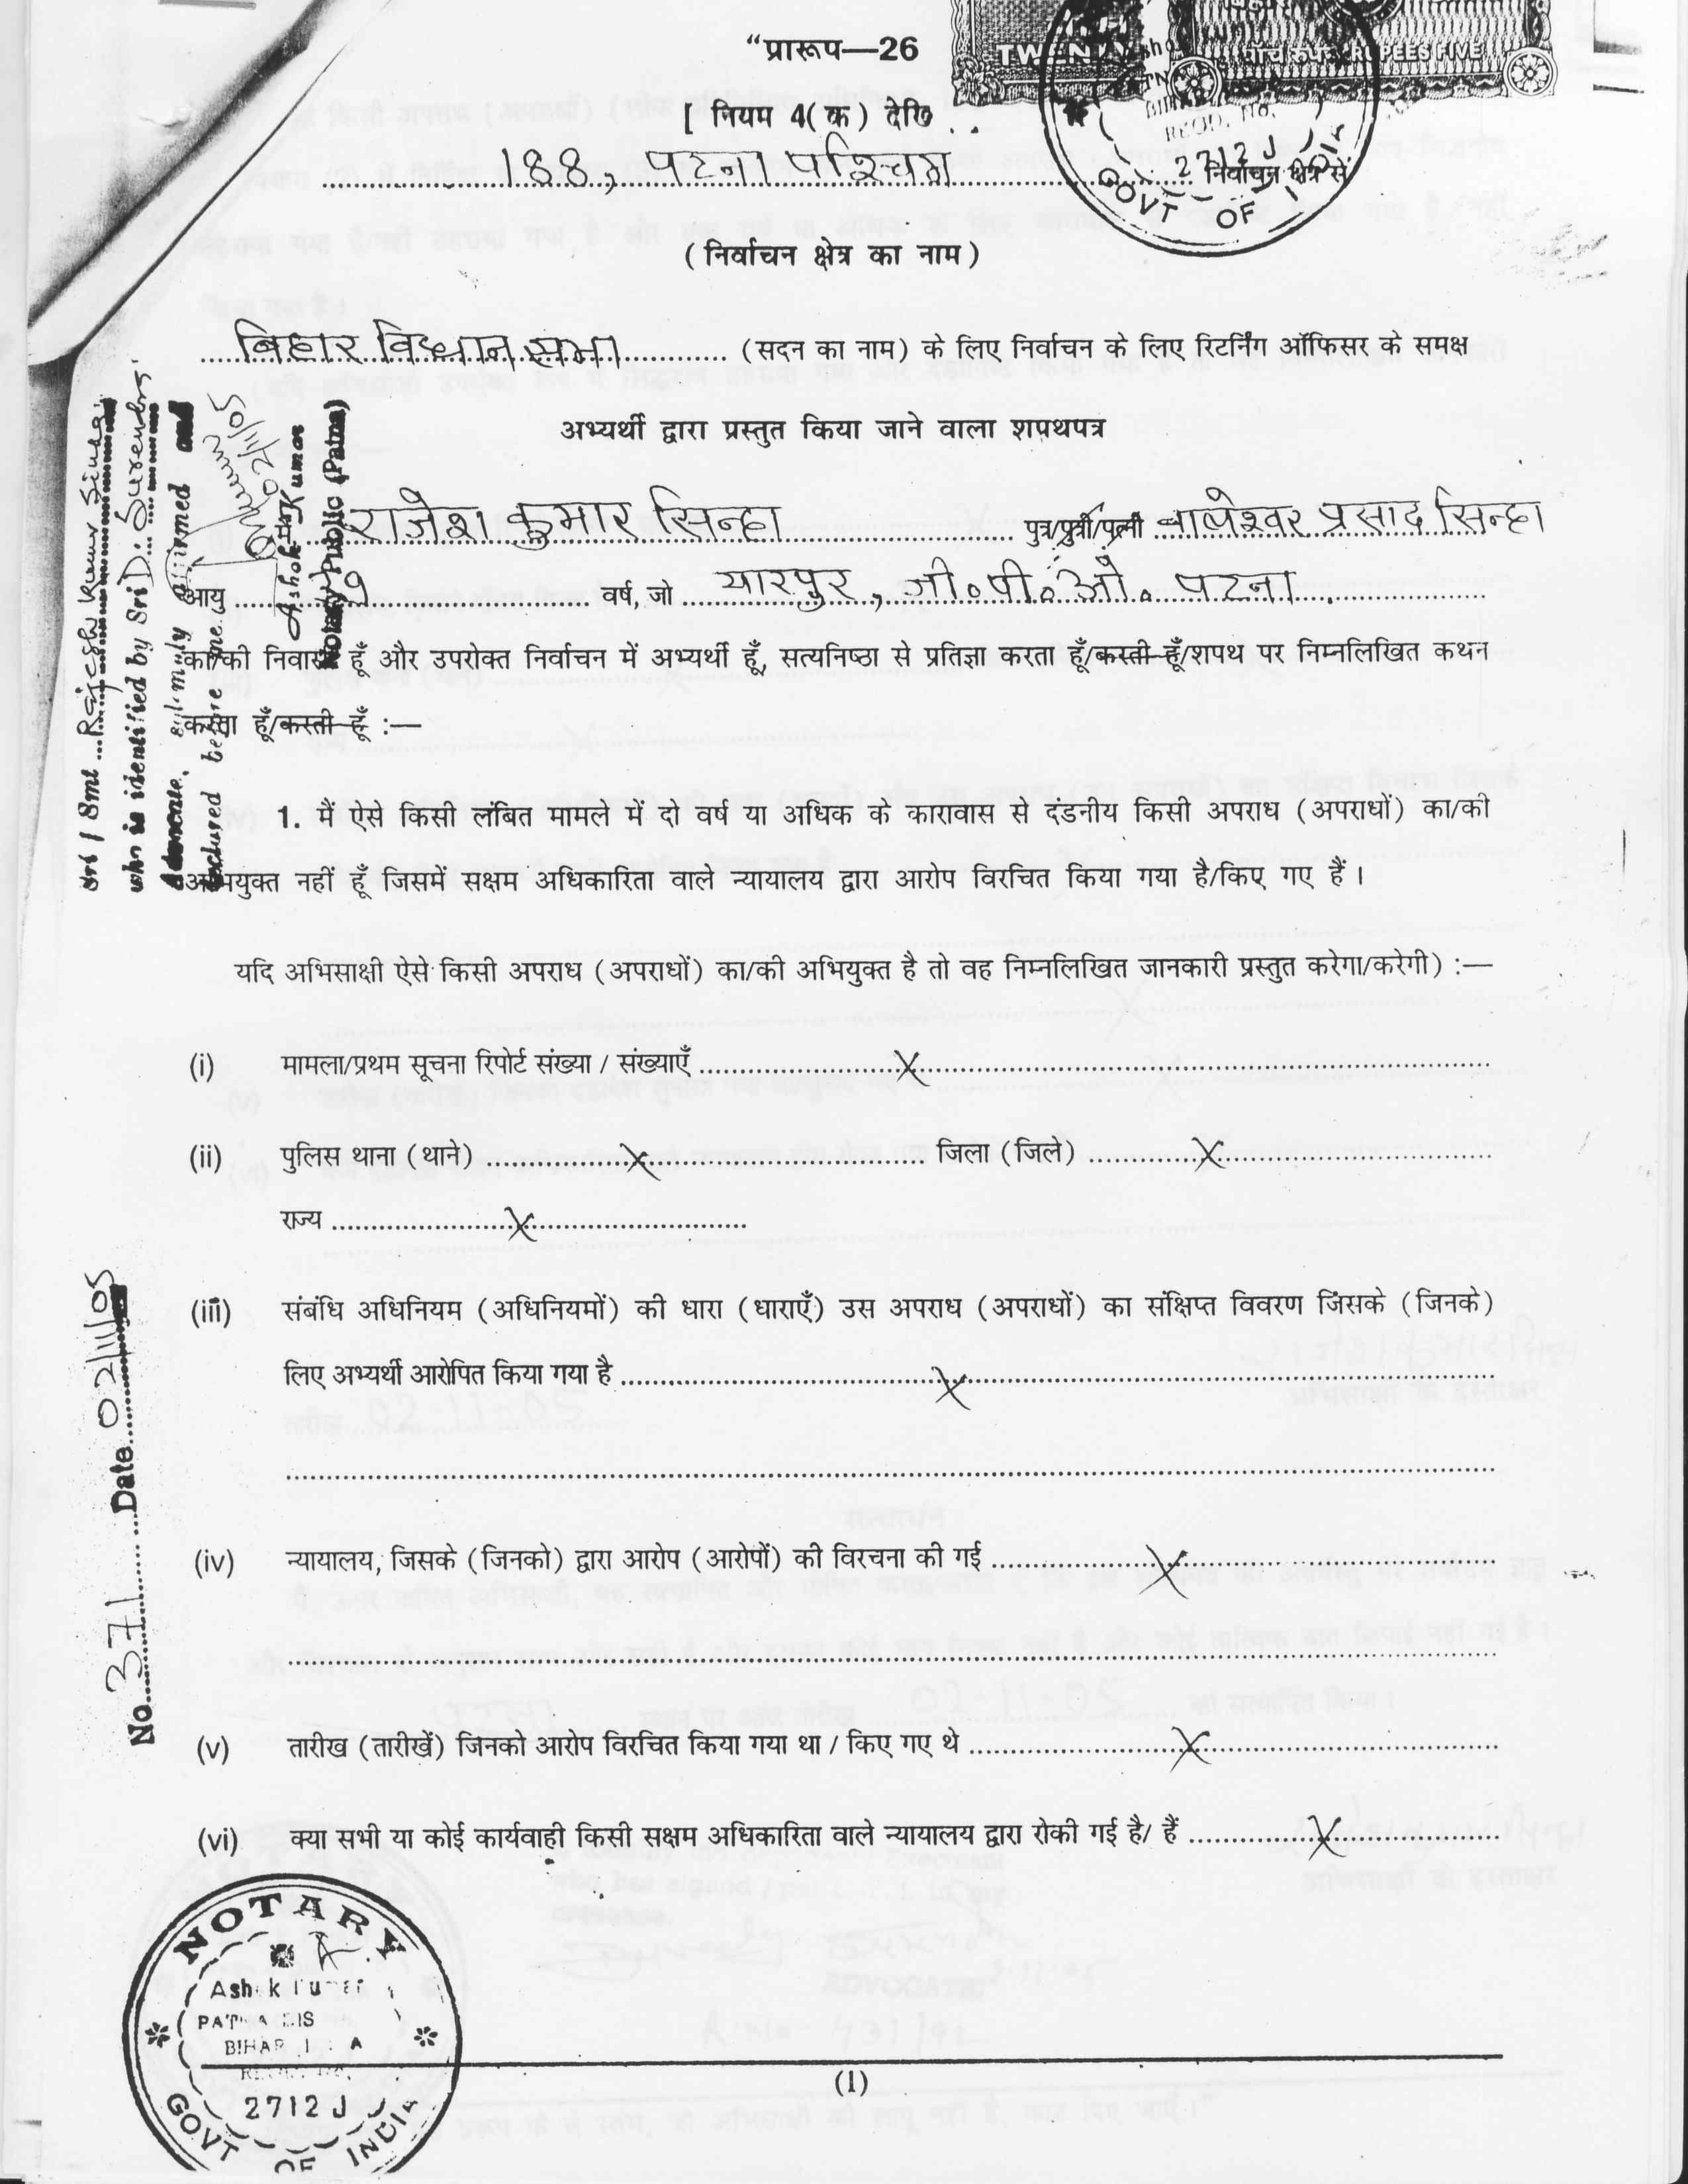 “प्रारूप—26
TWENTY
पाँच रुपए RUPEES FIVE
[ नियम 4(क) देखि
188, पटना पश्चिम निर्वाचन क्षेत्र से
2712 J
GOVT OF
(निर्वाचन क्षेत्र का नाम)
बिहार विधान सभा (सदन का नाम) के लिए निर्वाचन के लिए रिटर्निंग ऑफिसर के समक्ष
अभ्यर्थी द्वारा प्रस्तुत किया जाने वाला शपथपत्र
राजेश कुमार सिन्हा पुत्र/पुत्री/पत्नी प्रसाद सिन्हा
आयु वर्ष, जो यारपुर, जी॰पी॰ओ॰ पटना
का/की निवासी हूँ और उपरोक्त निर्वाचन में अभ्यर्थी हूँ, सत्यनिष्ठा से प्रतिज्ञा करता हूँ/करती हूँ/शपथ पर निम्नलिखित कथन
करता हूँ/करती हूँ :—
1. मैं ऐसे किसी लंबित मामले में दो वर्ष या अधिक के कारावास से दंडनीय किसी अपराध (अपराधों) का/की
अभियुक्त नहीं हूँ जिसमें सक्षम अधिकारिता वाले न्यायालय द्वारा आरोप विरचित किया गया है/किए गए हैं।
यदि अभिसाक्षी ऐसे किसी अपराध (अपराधों) का/की अभियुक्त है तो वह निम्नलिखित जानकारी प्रस्तुत करेगा/करेगी) :—
(i) मामला/प्रथम सूचना रिपोर्ट संख्या / संख्याएँ X
(ii) पुलिस थाना (थाने) X जिला (जिले) X
राज्य X
(iii) संबंधि अधिनियम (अधिनियमों) की धारा (धाराएँ) उस अपराध (अपराधों) का संक्षिप्त विवरण जिसके (जिनके)
लिए अभ्यर्थी आरोपित किया गया है X
(iv) न्यायालय, जिसके (जिनको) द्वारा आरोप (आरोपों) की विरचना की गई X
(v) तारीख (तारीखें) जिनको आरोप विरचित किया गया था / किए गए थे X
(vi) क्या सभी या कोई कार्यवाही किसी सक्षम अधिकारिता वाले न्यायालय द्वारा रोकी गई है/ हैं X
Sri / Smt Rajesh Kumar Sinha
who is identified by Sri D. Surendra
Advocate, solemnly affirmed and
declared before me.
02/11/05
Ashok Kumar
Notary Public (Patna)
No. 371 Date 02/11/05
NOTARY
Ashok Kumar
PATNA DIS
BIHAR
2712 J
GOVT OF INDIA
(1)